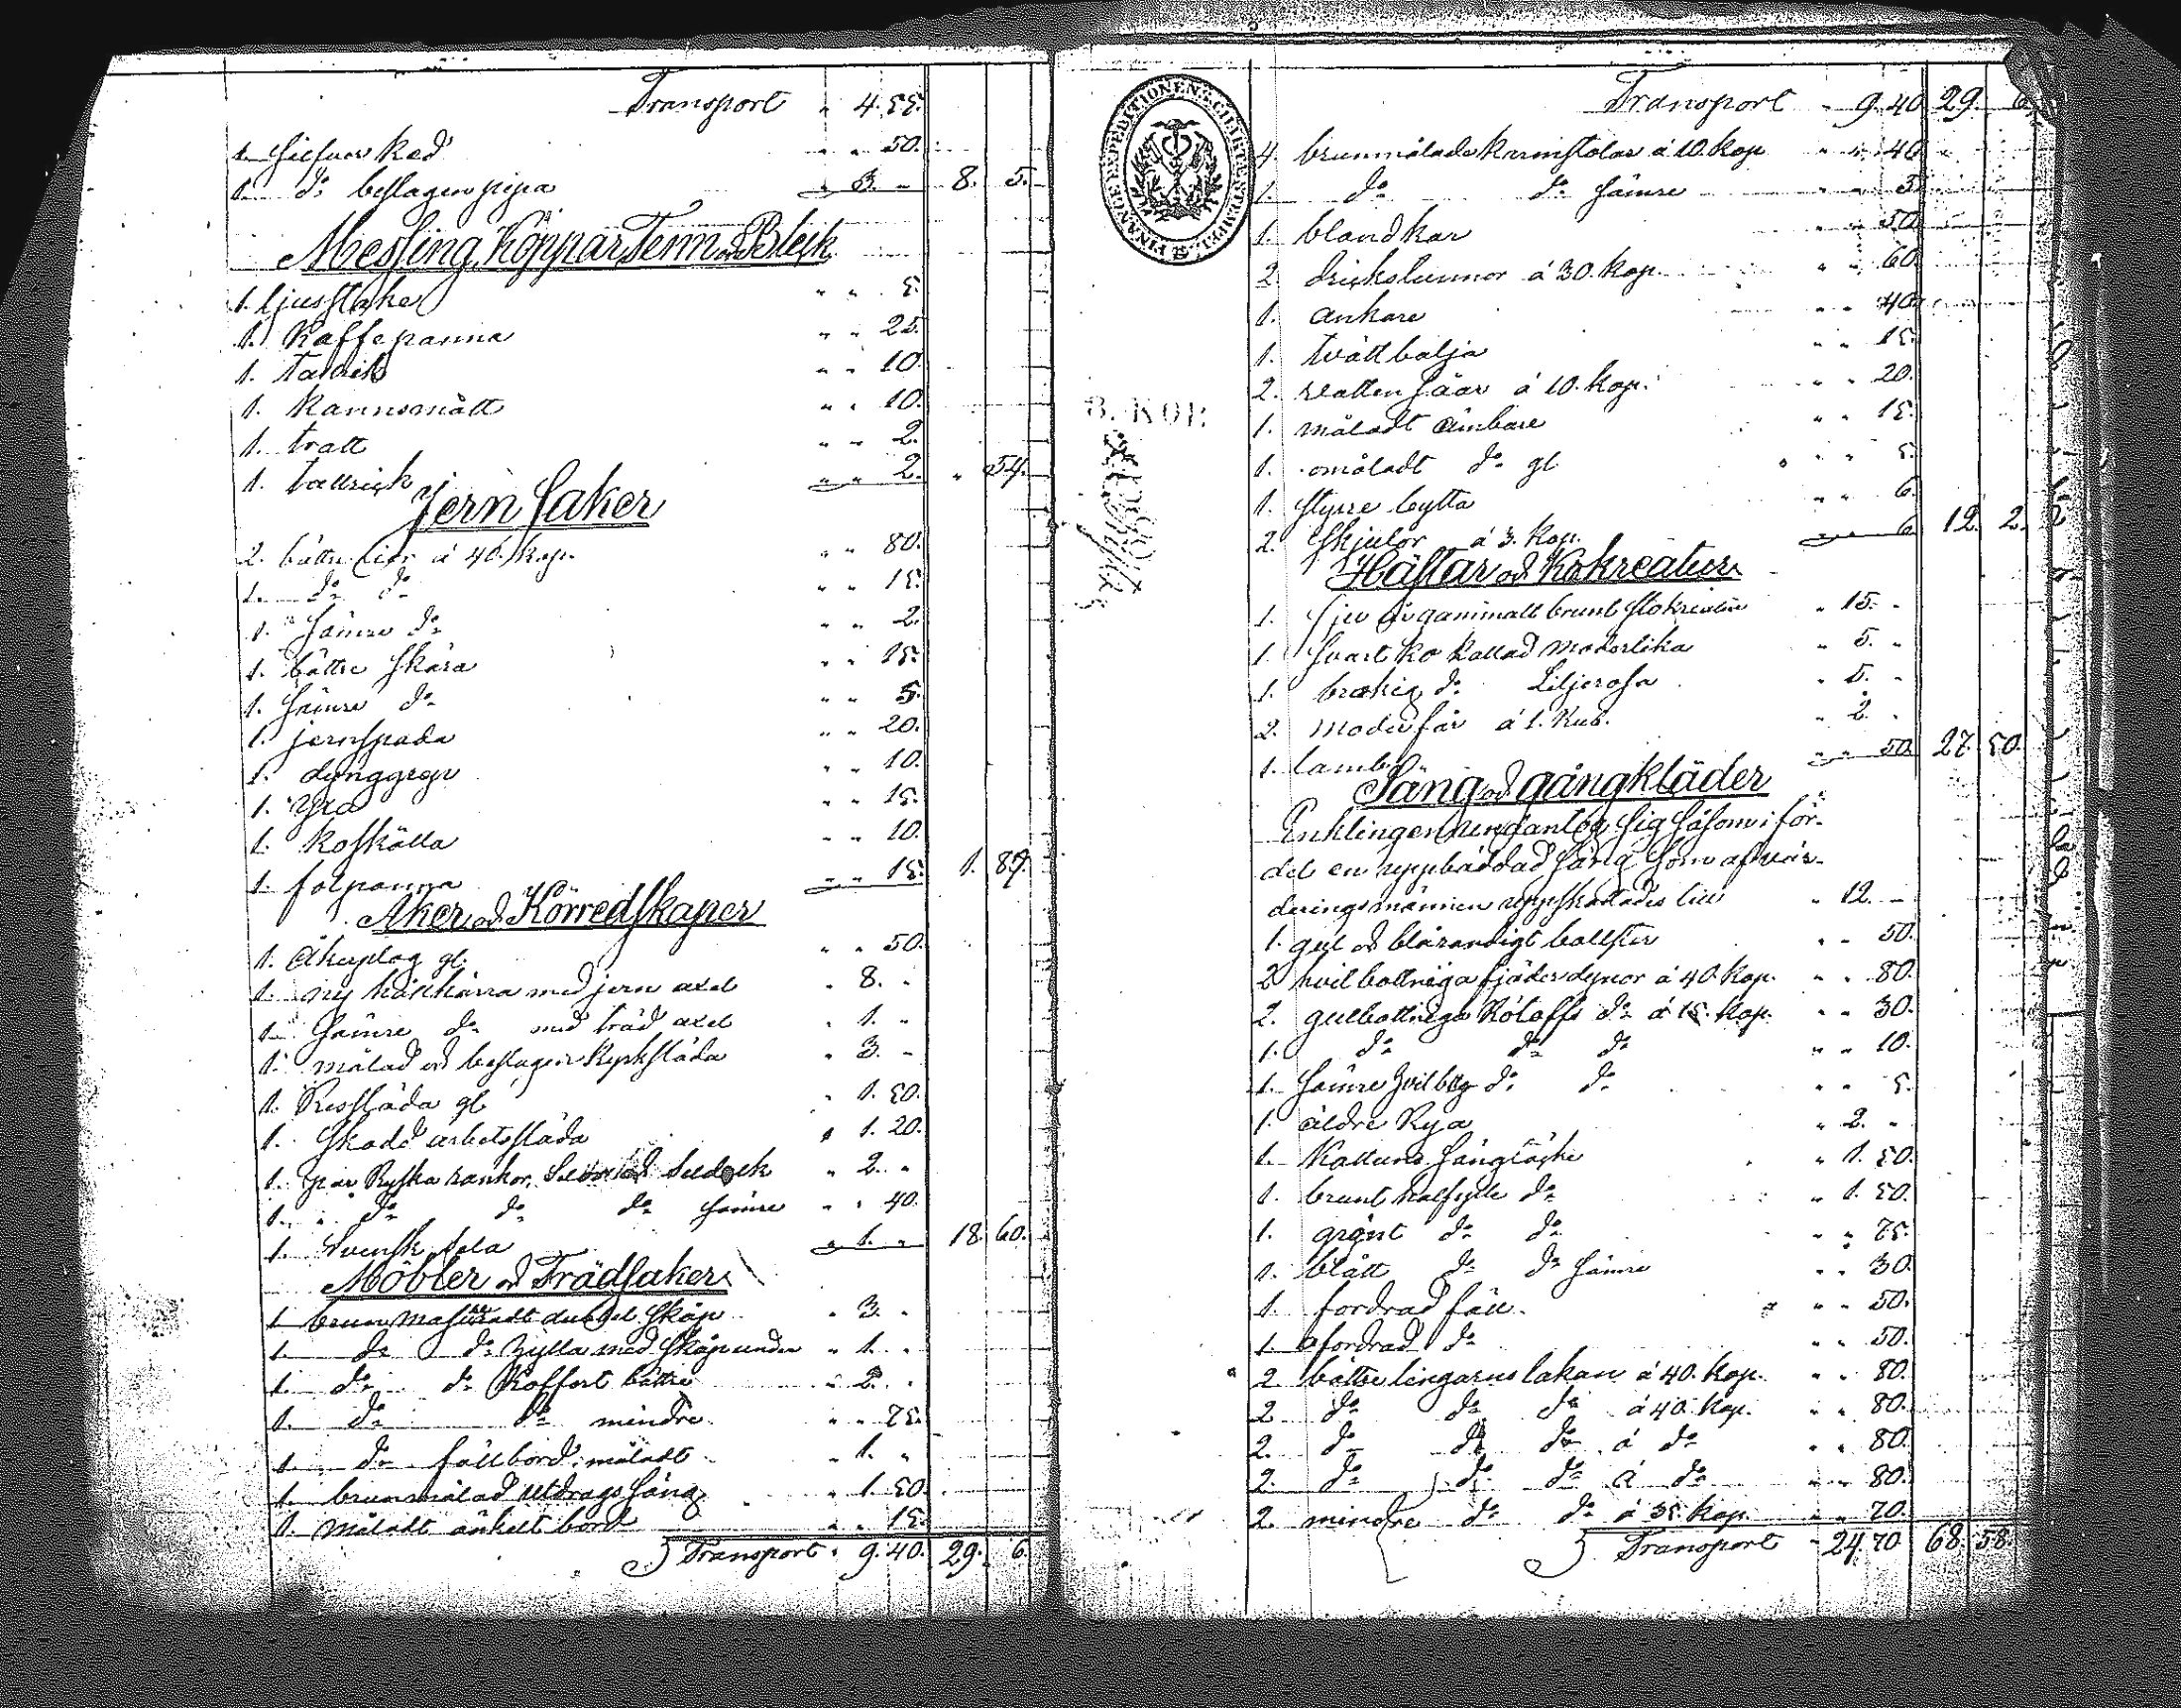 Transport " 4. 55.
1. Silfver ked " " 50.
1. do beslagen pipa " 3. " 8. 5.
Messing, Koppar, Tenn och Bleck
1. ljusstake " " 5.
1. Kaffepanna " " 25.
1. " " 10.
1. Kannomått " " 10.
1. tratt " " 2.
1. tallrick " " 2. " 54.
Jern Saker
2. bättre liar á 40. Kop. " " 80.
1. do do " " 15.
1. Sämre do " " 2.
1. bättre Skära " " 15.
1. Sämre do " " 5.
1. jernspada " " 20.
1. dynggrep " " 10.
1. yxa " " 15.
1. Koskälla " " 10.
1. fotpanna " " 15. 1. 87.
Åker och Körredskaper
1. åkerplog gl. " " 50.
1. ny häskärra med jern axel " 8. "
1. Sämre do med träd axel " 1. "
1. målad och beslagen Kyrksläda " 3. "
1. Ressläda gl " 1. 50.
1. Skodd arbetssläda " 1. 20.
1. par Ryska rankor, Seldon " 2. "
1. " do do do Sämre " " 40.
1. Svensk sela " 1. " 18. 60.
Möbler och Trädsaker
1 brun masureradt dubbel Skåp " 3. "
1. do do hylla med Skåp under " 1. "
1. do do Koffert bättre " 2. "
1. do do mindre " " 75.
1. do fällbord, måladt " 1. "
1. brunmålad utdrags Säng " 1. 50.
1. måladt enkelt bord " " 15.
Transport " 9. 40. 29. 6.
Transport " 9. 40 29. 6.
4. brunmålade karmstolar á 10. Kop " " 40
1. do do Sämre " " 5
1. blandkar " " 50
2. drickstunnor á 30. Kop. " " 60
1. ankare " " 40
1. tvättbalja " " 15.
2. vatten Såar á 10. Kop. " " 20.
1. måladt ämbare " " 15.
1. omåladt do gl " " 5.
1. Styrre bytta " " 6.
2. Skjulor á 3. Kop. " " 6 12. 2.
Hästar och Kokreatur
1. Sju års gammalt brunt Stokreatur " 15. "
1. Svart ko kallad Moderlika " 5. "
1. brokig do Liljerosa " 5. "
2. moderfår á 1. Rub. " 2. "
1. lamb " " 50. 27. 50.
Säng och gångkläder
Enklingen undantog sig såsom i för-
del en uppbäddad Säng Som af vär-
deringsmännen uppskattades till " 12. "
1. gul och blårandigt bolster " " 50.
2 hvit bottniga fjäderdynor á 40. Kop. " " 80.
2. gulbottniga Rótoffs do á 15. Kop. " " 30.
1. do do do " " 10.
1. Sämre hvitbtg do do " " 5.
1. äldre Rya " 2. "
1. Kattuns Sängtäcke " 1. 50.
1. brunt halfylle do " 1. 50.
1. grönt do do " " 75.
1. blått do do Sämre " " 30.
1. fordrad fäll. " " 50.
1. ofordrad do " " 50.
2 bättre lingarns lakan á 40. Kop. " " 80.
2 do do do á 40. Kop. " " 80.
2. do do do á do " " 80.
2. do do do á do " " 80.
2. mindre do do á 35. Kop. " " 70.
Transport " 24. 70. 68. 58.
FINANCE EXPEDITIONENS CHARTÆ STEMPEL
3. KOP.